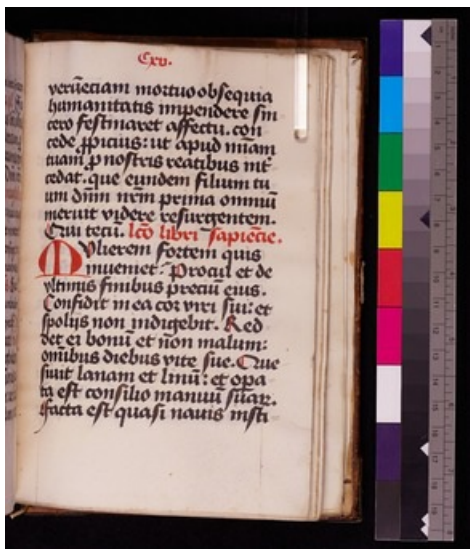 Cxv.
verūeciam mortuo obsequia
humanitatis impendere sin
cero festinaret affectu. con
cede ꝓpicius: ut apud miam
tuam ꝓ nostris reatibus int̄
cedat. que eundem filium tu
um dn̄m nr̄m prima omniū
meruit videre resurgentem.
Qui tecū. lc̄o libri sapiēcie.
Mulierem fortem quis
inueniet. Procul et de
vltimis finibus preciū eius.
Confidit in ea cor viri sui: et
spolijs non indigebit. Red
det ei bonū et non malum:
omibus diebus vite sue. Que
siuit lanam et linū: et opa
ta est consilio manuū suar.
facta est quasi nauis insti